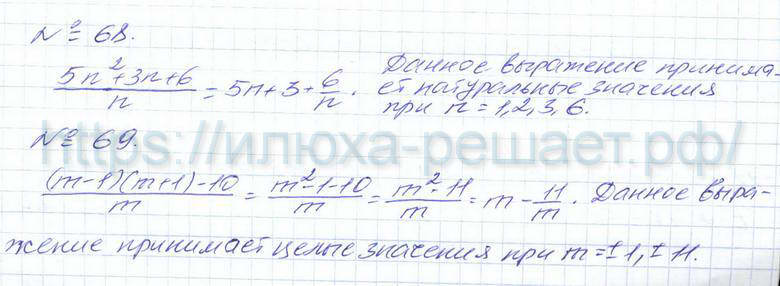 № 68.
(5n²+3n+6)/n = 5n+3+6/n. Данное выражение принима-
ет натуральные значения
при n=1,2,3,6.
№ 69.
https://илюха-решает.рф/
((m-1)(m+1)-10)/m = (m²-1-10)/m = (m²-11)/m = m - 11/m. Данное выра-
жение принимает целые значения при m=±1, ±11.